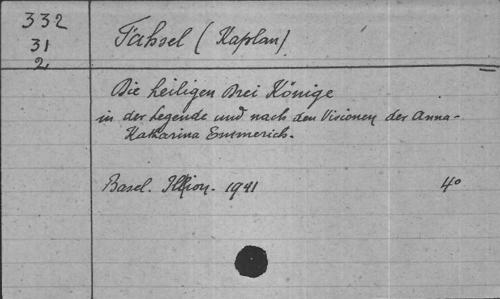 332
31
2
Fahsel (Kaplan)
Die heiligen Drei Könige
in der Legende und nach den Visionen der Anna-
Katharina Emmerich.
Basel. Ilion. 1941 4°